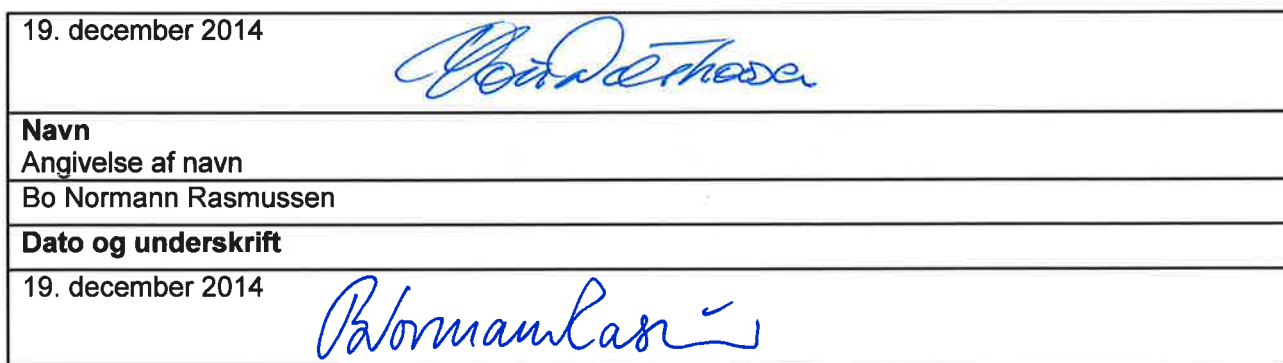 19. december 2014
Navn
Angivelse af navn
Bo Normann Rasmussen
Dato og underskrift
19. december 2014